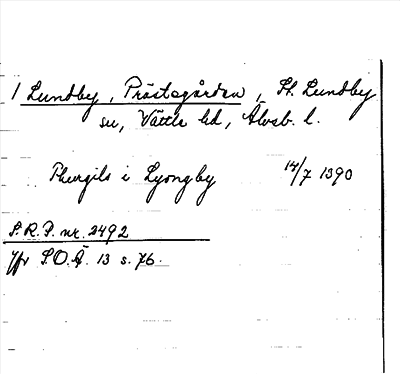 1 Lundby, Prästegården, St. Lundby
sn, Vättle hd, Älvsb. l.
Thorgils i Lyongby 14/7 1390
S.R.P. nr. 2492
Jfr S.O.Ä. 13 s. 76.